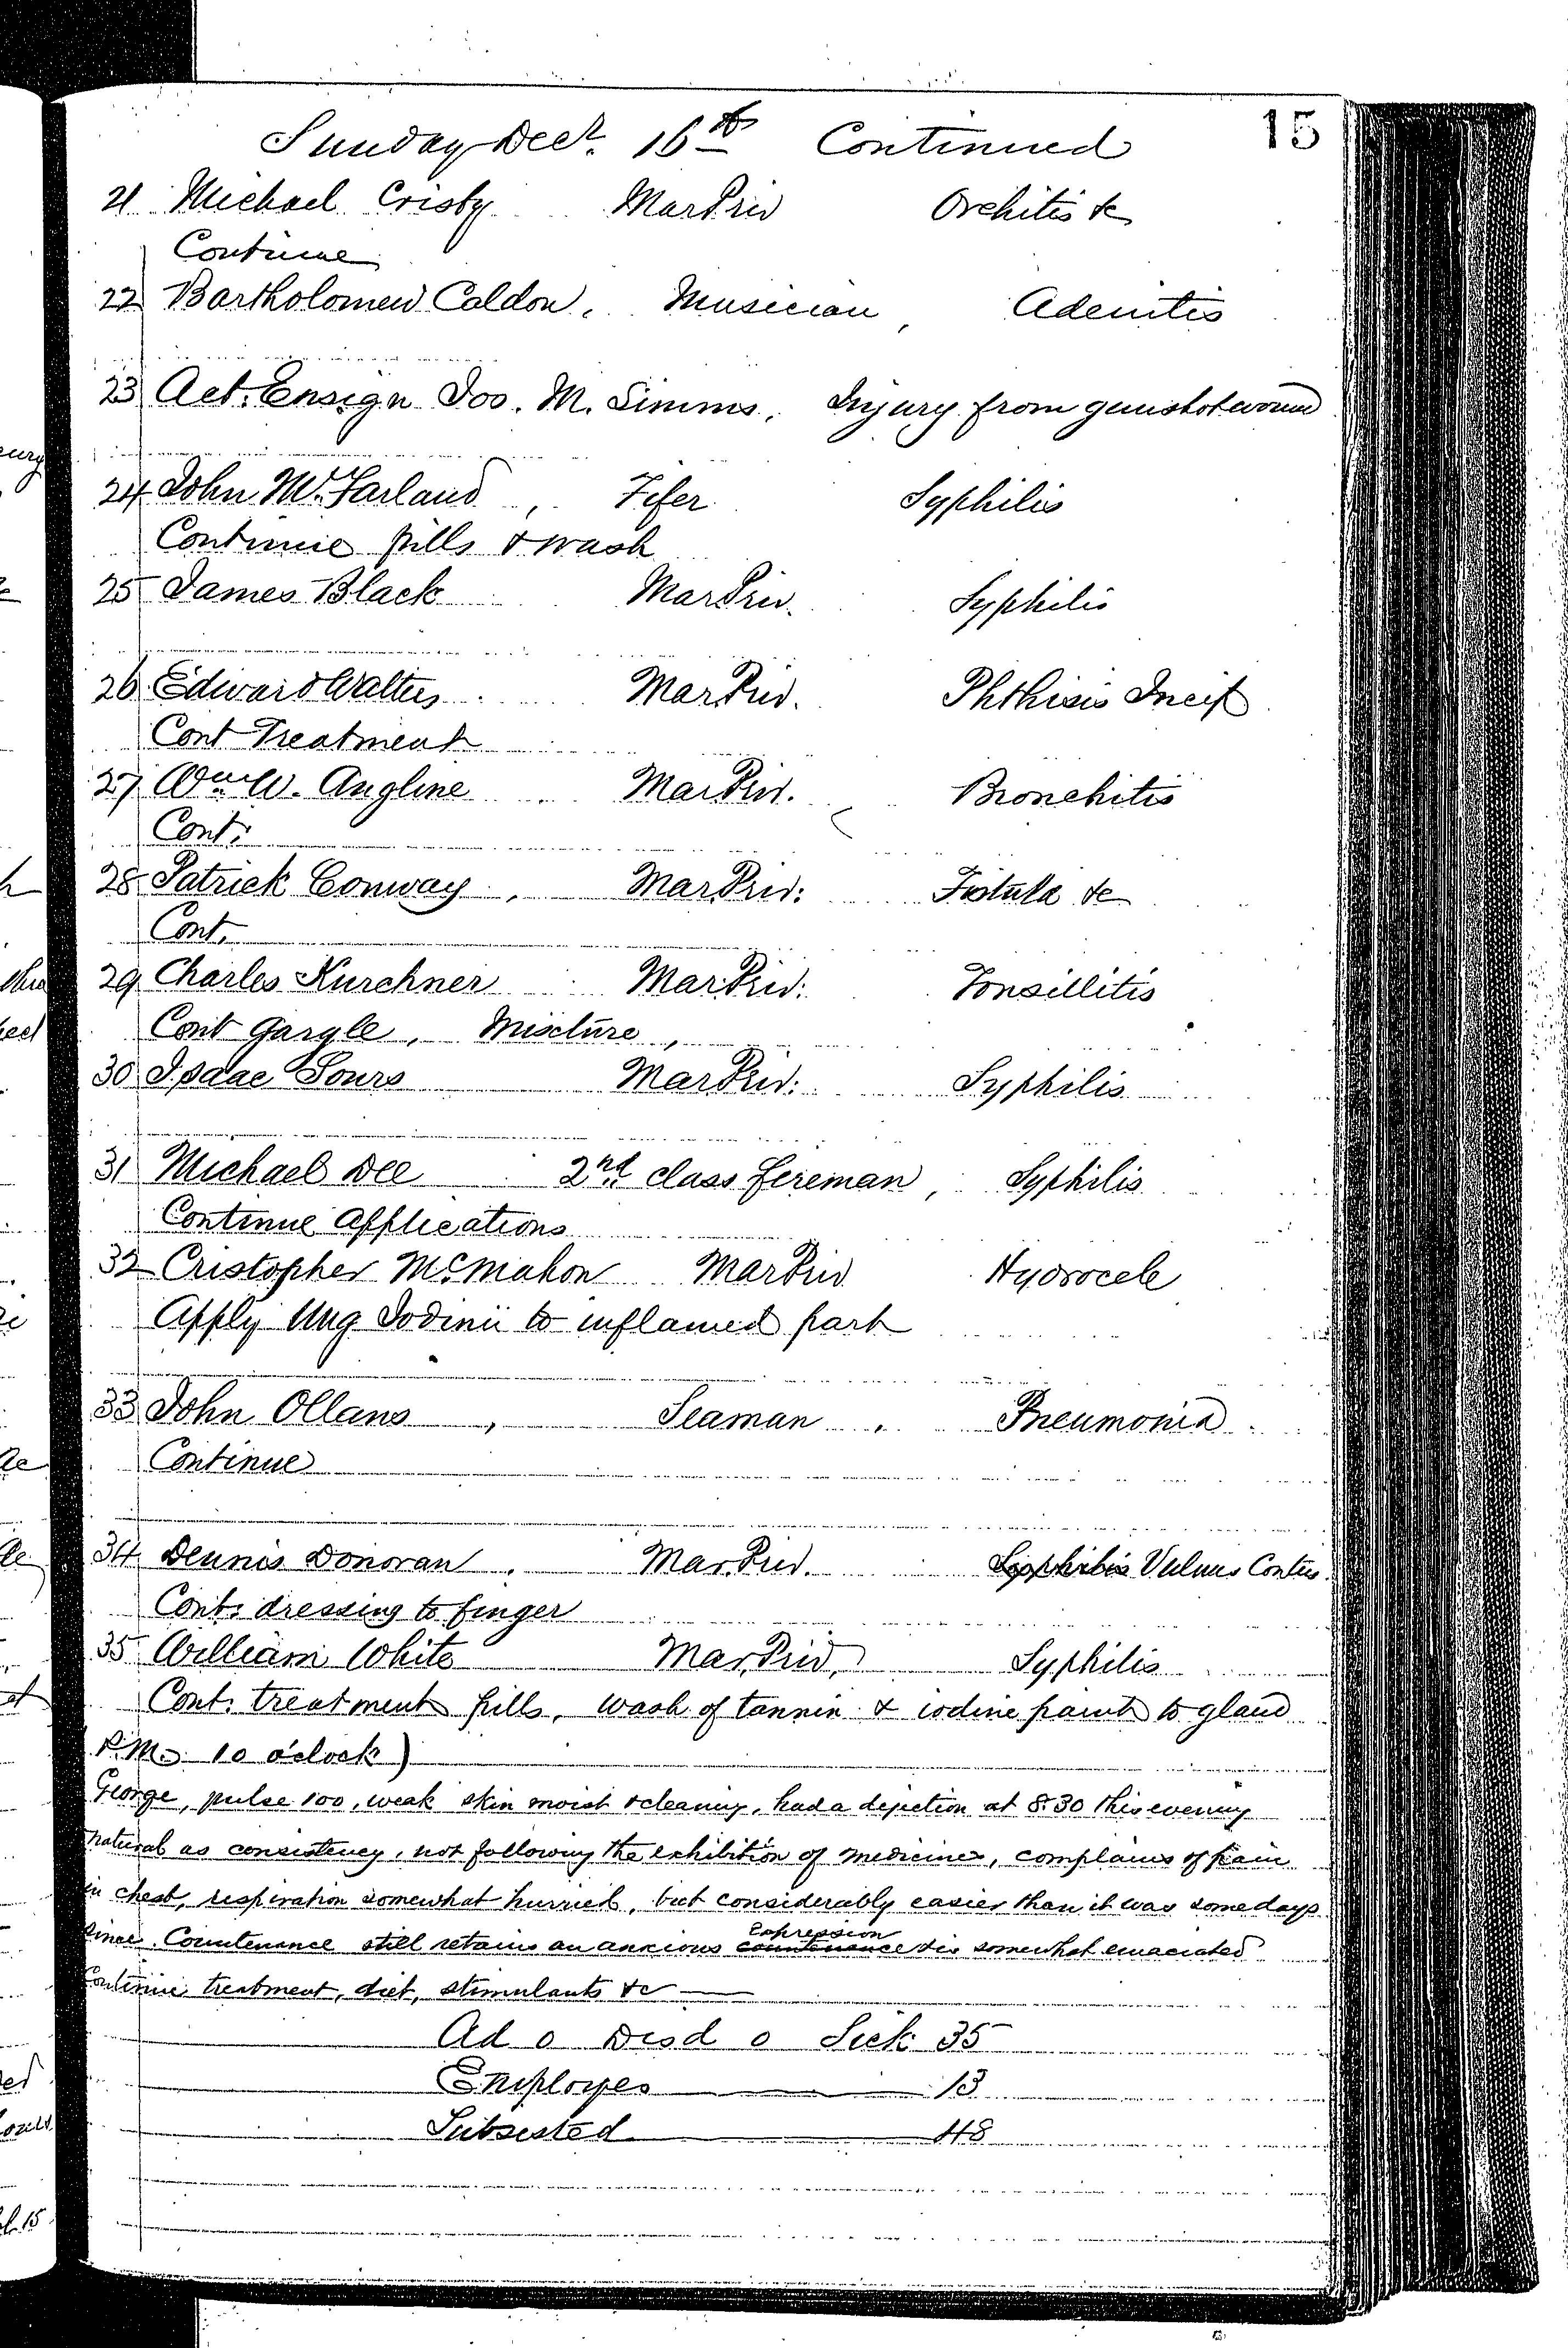 15
Sunday Decr. 16th Continued
21 Michael Crisby Mar Priv Orchitis &c
Continue
22 Bartholomew Caldon, Musician, Adenitis
23 Act. Ensign Jos. M. Simms, Injury from gunshot wound
24 John McFarland, Fifer Syphilis
Continue pills & wash
25 James Black Mar Priv. Syphilis
26 Edward Walters Mar Priv. Phthisis Incip
Cont Treatment
27 Wm W. Angline Mar Priv. Bronchitis
Cont.
28 Patrick Conway, Mar Priv: Fistula &c
Cont.
29 Charles Kurchner Mar Priv: Tonsillitis
Cont gargle, Mixture,
30 Isaac Sours Mar Priv: Syphilis
31 Michael Dee 2nd class fireman, Syphilis
Continue applications
32 Cristopher McMahon Mar Priv Hydrocele
Apply Ung Iodinii to inflamed part
33 John Ollans, Seaman, Pneumonia
Continue
34 Dennis Donovan. Mar. Priv. Syphilis Vulnus Contus.
Cont: dressing to finger
35 William White Mar. Priv, Syphilis
Cont. treatment pills, wash of tannin & iodine paint to gland
P.M. 10 o'clock)
George, pulse 100, weak skin moist & cleaning, had a dejection at 8.30 this evening
natural as consistency, not following the exhibition of medicines, complains of pain
in chest, respiration somewhat hurried, but considerably easier than it was some days
since. Countenance still retains an anxious countenance expression & is somewhat emaciated
Continue treatment, diet, stimulants &c
Ad 0 Disd 0 Sick 35
Employes 13
Subsisted 48